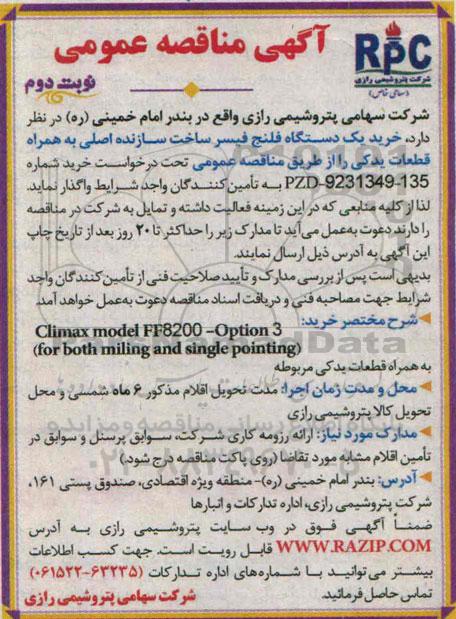 آگهی مناقصه عمومی
RPC
شرکت پتروشیمی رازی
(سهامی خاص)
نوبت دوم
شرکت سهامی پتروشیمی رازی واقع در بندر امام خمینی (ره) در نظر
دارد، خرید یک دستگاه فلنج فیسر ساخت سازنده اصلی به همراه
قطعات یدکی را از طریق مناقصه عمومی تحت درخواست خرید شماره
PZD-9231349-135 به تأمین‌کنندگان واجد شرایط واگذار نماید.
لذا از کلیه منابعی که در این زمینه فعالیت داشته و تمایل به شرکت در مناقصه
را دارند دعوت به‌عمل می‌آید تا مدارک زیر را حداکثر تا ۲۰ روز بعد از تاریخ چاپ
این آگهی به آدرس ذیل ارسال نمایند.
بدیهی است پس از بررسی مدارک و تأیید صلاحیت فنی از تأمین‌کنندگان واجد
شرایط جهت مصاحبه فنی و دریافت اسناد مناقصه دعوت به‌عمل خواهد آمد.
شرح مختصر خرید:
Climax model FF8200 –Option 3
(for both miling and single pointing)
به همراه قطعات یدکی مربوطه
محل و مدت زمان اجرا: مدت تحویل اقلام مذکور ۶ ماه شمسی و محل
تحویل کالا پتروشیمی رازی
مدارک مورد نیاز: ارائه رزومه کاری شرکت، سوابق پرسنل و سوابق در
تأمین اقلام مشابه مورد تقاضا (روی پاکت مناقصه درج شود.)
آدرس: بندر امام خمینی (ره)- منطقه ویژه اقتصادی، صندوق پستی ۱۶۱،
شرکت پتروشیمی رازی، اداره تدارکات و انبارها
ضمناً آگهی فوق در وب سایت پتروشیمی رازی به آدرس
WWW.RAZIP.COM قابل رویت است. جهت کسب اطلاعات
بیشتر می‌توانید با شماره‌های اداره تدارکات (۶۳۲۳۵-۰۶۱۵۲۲)
تماس حاصل فرمائید.
شرکت سهامی پتروشیمی رازی